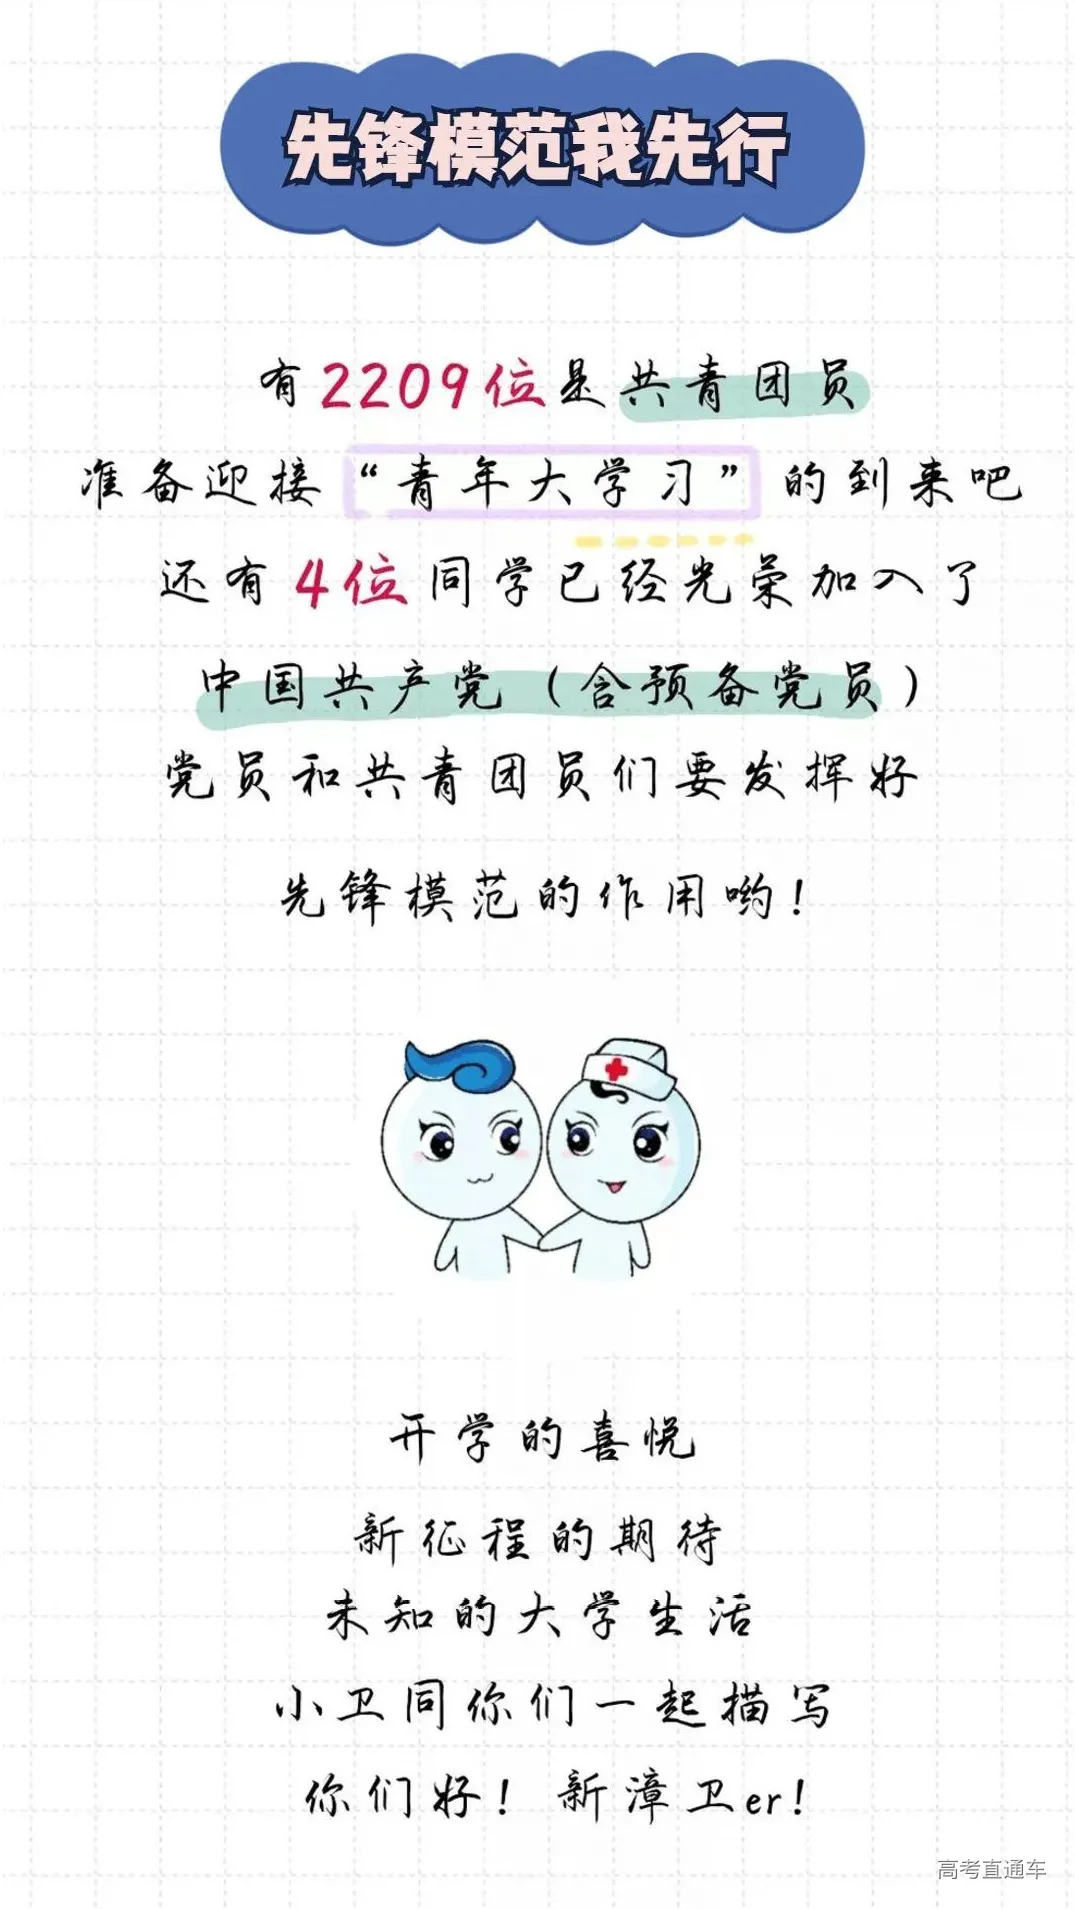 先锋模范我先行
有2209位是共青团员
准备迎接“青年大学习”的到来吧
还有4位同学已经光荣加入了
中国共产党（含预备党员）
党员和共青团员们要发挥好
先锋模范的作用哟！
开学的喜悦
新征程的期待
未知的大学生活
小卫同你们一起描写
你们好！新漳卫er！
高考直通车